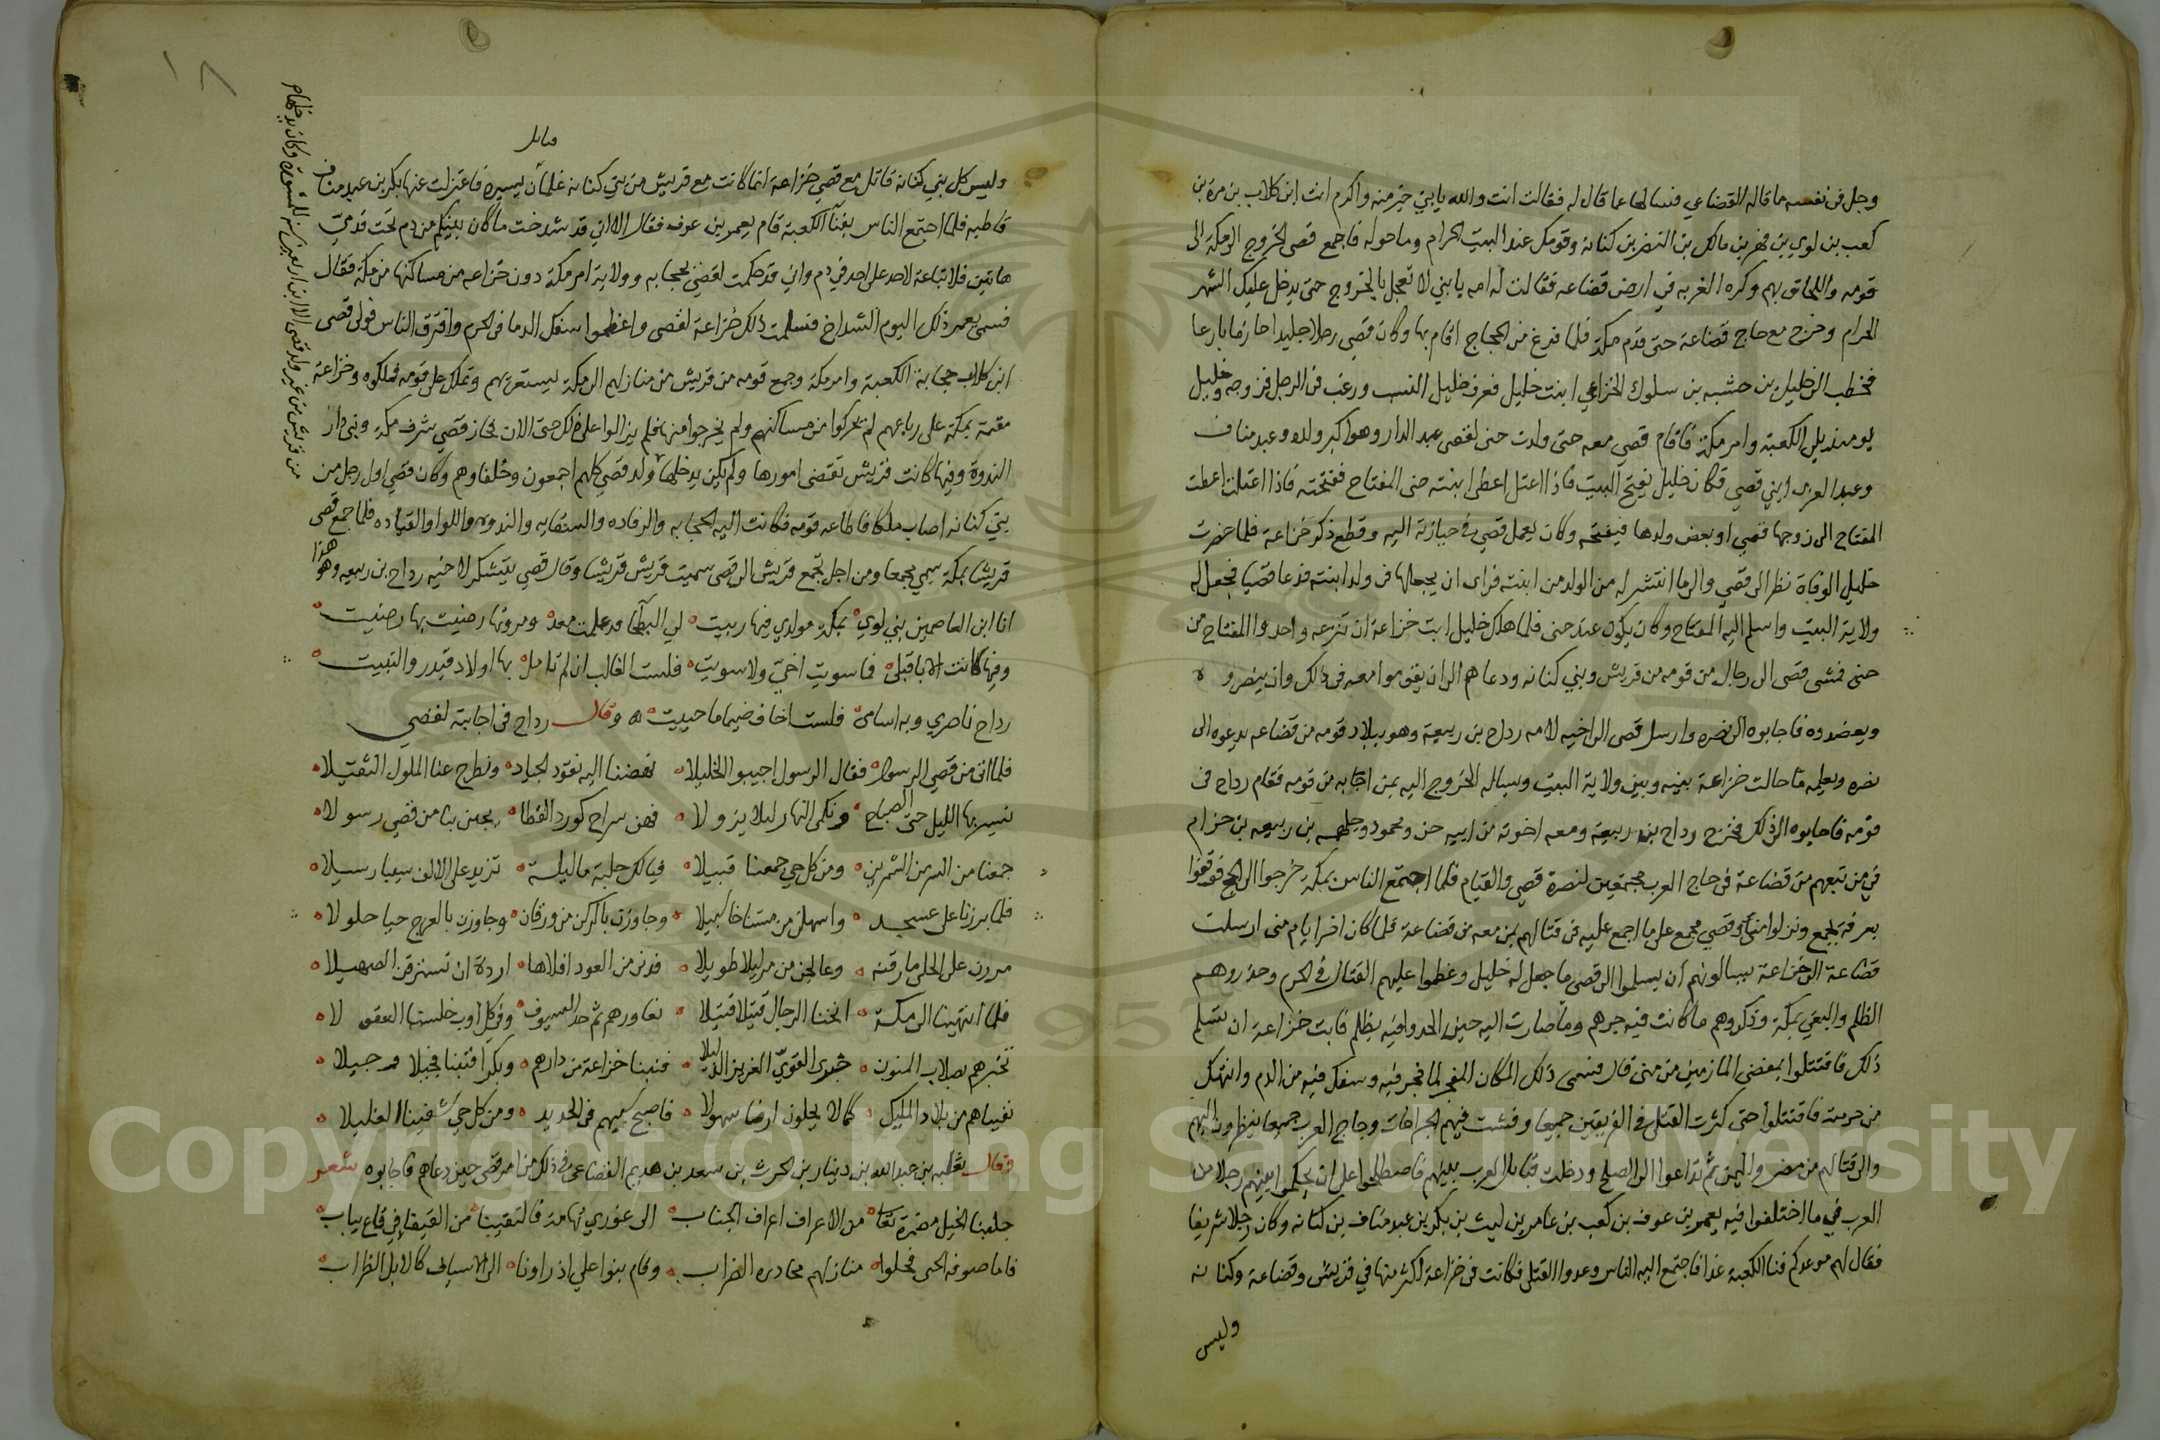 وجل في نفسه ما قاله القضاعي فسالها عما قال له فقالت انت والله يا بني خير منه واكرم انت ابن كلاب بن مرة بن
كعب بن لوي بن فهر بن مالك بن النضر بن كنانة وقومك عند البيت الحرام وما حوله فاجمع قصي الخروج الى مكة الى
قومه واللحاق بهم وكره الغربه في ارض قضاعه فقالت له امه يا بني لا تعجل بالخروج حتى يدخل عليك الشهر
الحرام وخرج مع حاج قضاعة حتى قدم مكة فلما فرغ من الحجاج اقام بها وكان قصي رجلا جليدا حازما بارعا
فخطب الى خليل بن حشبه بن سلوك الخزاعي ابنت خليل فعرف خليل النسب ورغب في الرجل فزوجه وخليل
يومئذ يلي الكعبة وامر مكة فاقام قصي معه حتى ولدت حبى لقصي عبد الدار وهو اكبر ولده وعبد مناف
وعبد العزى ابني قصي فكان خليل يفتح البيت فاذا اعتل اعطى ابنته حبى المفتاح ففتحته فاذا اعتلت اعطت
المفتاح الى زوجها قصي او بعض ولدها فيفتحه وكان يعمل قصي في حيازته اليه وقطع ذكر خزاعة فلما حضرت
خليل الوفاة نظر الى قصي والى ما انتشر له من الولد من ابنته فراى ان يجعلها في ولد ابنته فدعا قصيا فجعل له
ولاية البيت واسلم اليه المفتاح وكان يكون عند حبى فلما هلك خليل ابت خزاعة ان تنزعه واخدوا المفتاح من
حبى فمشى قصي الى رجال من قومه من قريش وبني كنانه ودعاهم الى ان يقوموا معه في ذلك وان ينصروه
ويعضدوه فاجابوه الى نصره وارسل قصي الى اخيه لامه رداح بن ربيعة وهو ببلاد قومه من قضاعه يدعوه الى
نصره ويعلمه ما حالت خزاعة بينه وبين ولاية البيت ويساله الخروج اليه بمن اجابه من قومه فقام رداح في
قومه فاجابوه الى ذلك فخرج رداح بن ربيعة ومعه اخوته من ابيه حن ومحمود وجلهمه بن ربيعه بن حزام
في من تبعهم من قضاعة في حاج العرب مجتمعين لنصرة قصي والقيام فلما اجتمع الناس بمكة خرجوا الى الحج فوقفوا
بعرفة وبجمع ونزلوا منى وقصي مجمع على ما اجمع عليه في قتالهم بمن معه من قضاعة فلما كان اخر ايام منى ارسلت
قضاعة الى خزاعة يسالونهم ان يسلموا الى قصي ما جعل له خليل وعظموا عليهم القتال في الحرم وحذروهم
الظلم والبغي بمكة وذكروهم ما كانت فيه جرهم وما صارت اليه حين الحدوا فيه بظلم فابت خزاعة ان تسلم
ذلك فاقتتلوا بمفضى المازمين من منى قال فسمى ذلك المكان المفجر لما فجر فيه وسفك فيه من الدم وانتهك
من حرمته فاقتتلوا حتى كثرت القتلى في الفريقين جميعا وفشت فيهم الجراحات وحاج العرب جميعا ينظرون اليهم
والى قتالهم من مضر واليمن ثم تداعوا الى الصلح ودخلت قبائل العرب بينهم فاصطلحوا على ان يحكموا بينهم رجلا من
العرب في ما اختلفوا فيه يعمر بن عوف بن كعب بن عامر بن ليث بن بكر بن عبد مناف بن كنانه وكان رجلا شريفا
فقال لهم موعدكم فنا الكعبة غدا فاجتمع اليه الناس وعدوا القتلى فكانت في خزاعة اكثر منها في قريش وقضاعة وكنانه
وليس
قاتل
وليس كل بني كنانة قاتل مع قصي خزاعة انما كانت مع قريش من بني كنانه غلمان يسيره فاعتزلت عنها بكر بن عبد مناف
قاطبه فلما اجتمع الناس بفنآ الكعبة قام يعمر بن عوف فقال الا اني قد شدخت ما كان بينكم من دم تحت قدمي
هاتين فلا تباعة لاحد على احد في دم واني قد حكمت لقصي بحجابه وولاية امر مكة دون خزاعه من مساكنها من مكة فقال
فسمى يعمر ذلك اليوم الشداخ فسلمت ذلك خزاعة لقصي واعظموا سفك الدما في الحرم وافترق الناس فولى قصي
ابن كلاب حجابة الكعبة وامر مكة وجمع قومه من قريش من منازلهم الى مكة ليستعز بهم وتملك على قومه فملكوه وخزاعة
مقيمة بمكة على رباعهم لم يحركوا من مساكنهم ولم يخرجوا منها فلم يزالوا على ذلك حتى الان فحاز قصي شرف مكة وبنى دار
الندوة وفيها كانت قريش تقضي امورها ولم يكن يدخلها ولد قصي كلهم اجمعون وحلفاوهم وكان قصي اول رجل من
بني كنانه اصاب ملكا فاطاعه قومه فكانت اليه الحجابه والرفاده والسقايه والندوه واللوا والقياده فلما جمع قصي
قريشا بمكة سمي مجمعا ومن اجل تجمع قريش الى قصي سميت قريش قريشا وقال قصي يتشكر لاخيه رداح بن ربيعه وهو هذا
انا ابن العاصمين بني لوي بمكة مولدي فيها ربيت لي البطحا قد علمت معد ومروتها رضيت بها رضيت
وفيها كانت الابا قبلي فما سويت اخي ولا سويت فلست الغالب ان لم تاهل بها اولاد قيدر والنبيت
رداح ناصري وبه اسامي فلست اخاف ضيما ما حييت وقال رداح في اجابته لقصي
فلما اتى من قصي الرسول فقال الرسول اجيبوا الخليلا نهضنا اليه نقود الجياد ونطرح عنا الملول الثقيلا
نسير بها الليل حتى الصباح ونكمى النهار ليلا يزولا فهن سراع كورد القطا يجبن بنا من قصي رسولا
جمعنا من السر من اشمذين ومن كل حي جمعنا قبيلا فيالك حلبة ما ليلة تزيد على الالف سيبا رسيلا
فلما برزنا على عسجد واسهلن من مستناخ سبيلا وجاوزن بالركن من ورقان وجاوزن بالعرج حيا حلولا
مررن على الحلى ما ذقنه وعالجن من مر ليلا طويلا فدنى من العود افلاها ارادة ان تسترقن الصهيلا
فلما انتهينا الى مكة ابحنا الرجال قتيلا قتيلا نعاورهم ثم حد السيوف وفي كل اوب خلسنا العقولا
نخبزهم بصلاب المنون خبز القوي العزيز الذليلا فنبنا خزاعة من دارهم وبكرا قتبنا فجيلا فجيلا
نفيناهم من بلاد المليك كما لا يحلون ارضا سهولا فاصبح سبيهم في الحديد ومن كل حي شفينا الغليلا
فقال ثعلبه بن عبد الله بن دنيار بن الحرث بن سعد بن هديم القضاعي في ذلك من امر قصي حين دعاهم فاجابوه شعر
جلبنا الخيل مضمرة تعا من الاعراف اعراف الجناب الى غوري تهامة فالتقينا من الفيفا في قاع يباب
فاما صوفه الحى فخلوا منازلهم محاذره الضراب وقام بنوا علي اذ راونا الى الاسياف كالابل الظراب
من قريش من غير ولد قصي الا ابن اربعين سنه للمشوره وكان يدخلها